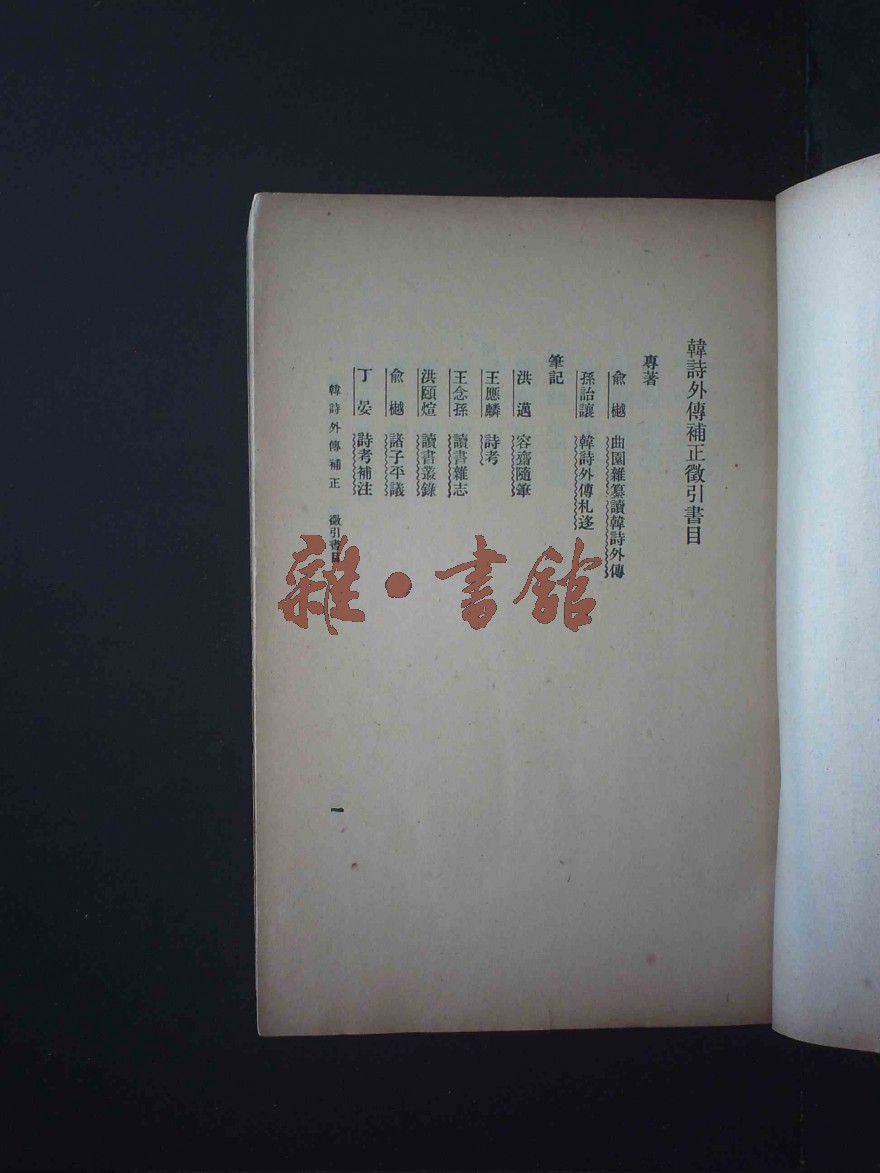 韓詩外傳補正徵引書目
專著
俞樾 曲園雜纂讀韓詩外傳
孫詒讓 韓詩外傳札迻
筆記
洪邁 容齋隨筆
王應麟 詩考
王念孫 讀書雜志
洪頤煊 讀書叢錄
俞樾 諸子平議
丁晏 詩考補注
韓詩外傳補正 徵引書目
一
雜·書館